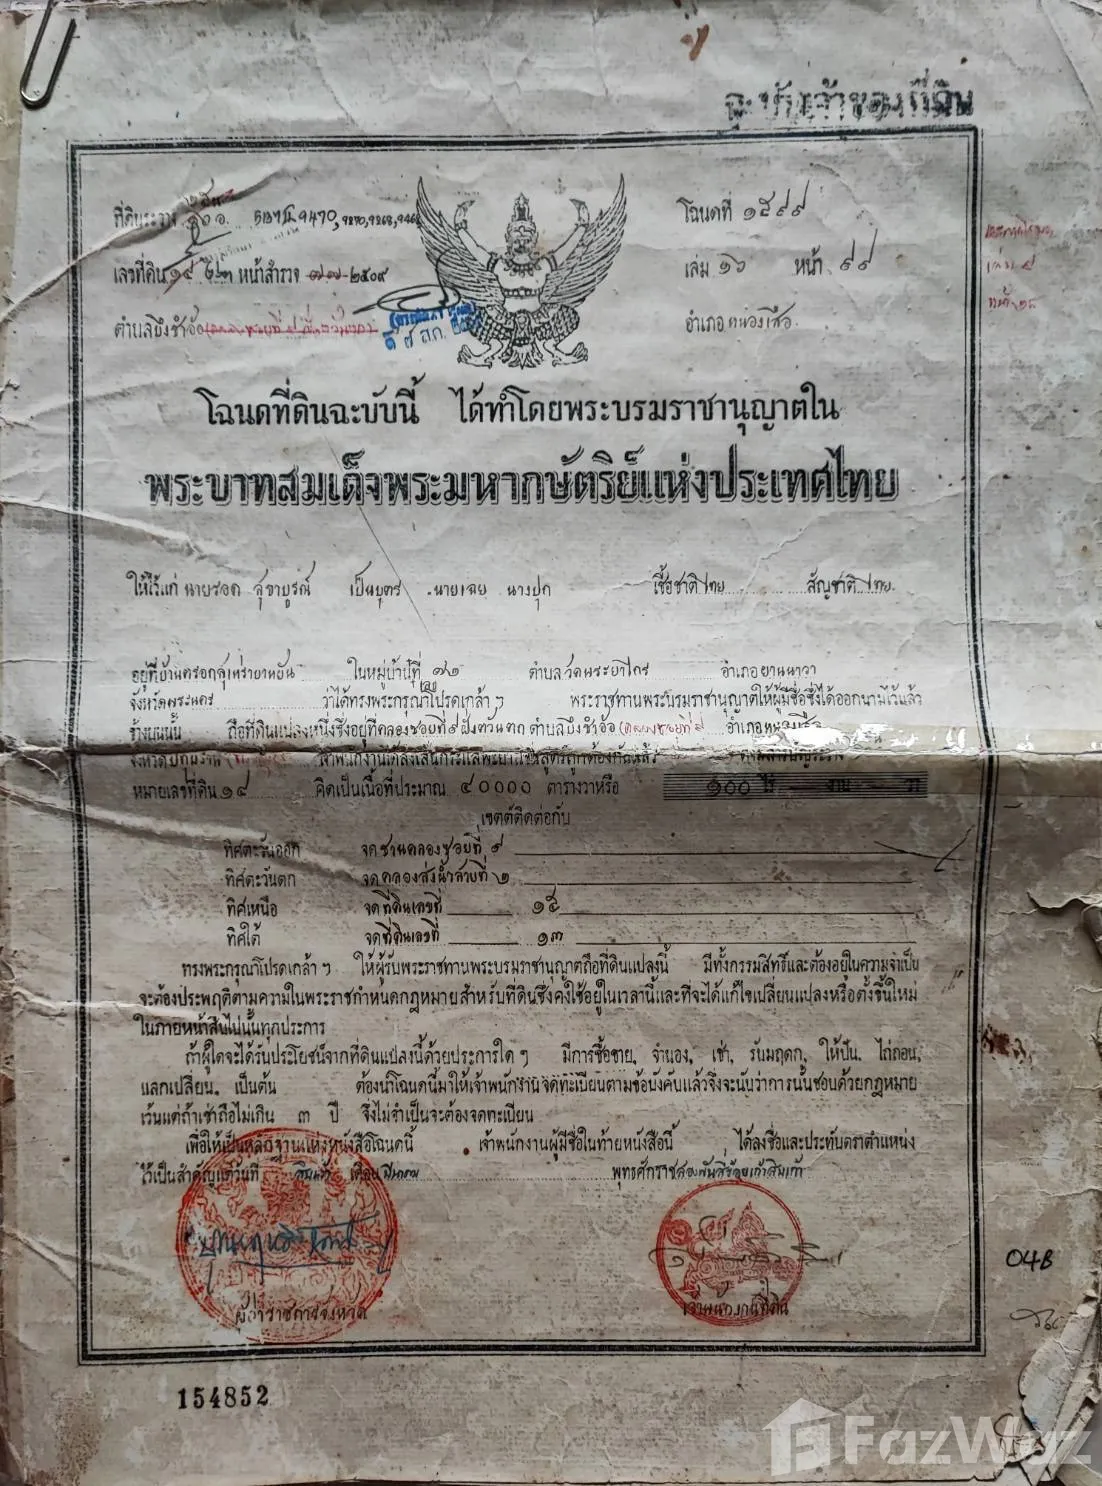 ฉะบับเจ้าของที่ดิน
ที่ดินระวาง ๑๐ อ. 5137 II 9470, 9270, 9268,
โฉนดที่ ๑๕๙๙
เลขที่ดิน ๑๙ หน้าสำรวจ ๗๗ ๒๕๐๙
เล่ม ๑๖ หน้า ๙๙
ตำบลบึงชำอ้อ
อำเภอ หนองเสือ
โฉนดที่ดินฉะบับนี้ ได้ทำโดยพระบรมราชานุญาตใน
พระบาทสมเด็จพระมหากษัตริย์แห่งประเทศไทย
ให้ไว้แก่ นายรอด สุขาบูรณ์ เป็นบุตร นายเฉย นางปุก เชื้อชาติไทย สัญชาติไทย
อยู่ที่บ้านตรอกสุเหร่ายานยัน ในหมู่บ้านที่ ๑๒ ตำบลวัดพระยาไกร อำเภอยานนาวา
จังหวัดพระนคร ว่าได้ทรงพระกรุณาโปรดเกล้า ฯ พระราชทานพระบรมราชานุญาตให้ผู้มีชื่อซึ่งได้ออกนามไว้แล้ว
ข้างบนนั้น ถือที่ดินแปลงหนึ่งซึ่งอยู่ที่คลองซอยที่ ๙ ฝั่งตวันตก ตำบลบึงชำอ้อ อำเภอหนองเสือ
จังหวัดปทุมธานี
หมายเลขที่ดิน ๑๙ คิดเป็นเนื้อที่ประมาณ ๔๐๐๐๐ ตารางวาหรือ ๑๐๐ ไร่ งาน วา
เขตต์ติดต่อกับ
ทิศตะวันออก จดชานคลองซอยที่ ๙
ทิศตะวันตก จดคลองส่งน้ำสายที่ ๒
ทิศเหนือ จดที่ดินเลขที่ ๑๕
ทิศใต้ จดที่ดินเลขที่ ๑๓
ทรงพระกรุณาโปรดเกล้า ฯ ให้ผู้รับพระราชทานพระบรมราชานุญาตถือที่ดินแปลงนี้ มีทั้งกรรมสิทธิ์และต้องอยู่ในความจำเป็น
จะต้องประพฤติตามความในพระราชกำหนดกฎหมายสำหรับที่ดินซึ่งคงใช้อยู่ในเวลานี้และที่จะได้แก้ไขเปลี่ยนแปลงหรือตั้งขึ้นใหม่
ในภายหน้าสืบไปนั้นทุกประการ
ถ้าผู้ใดจะได้รับประโยชน์จากที่ดินแปลงนี้ด้วยประการใด ๆ มีการซื้อขาย, จำนอง, เช่า, รับมฤดก, ให้ปัน, ไถ่ถอน,
แลกเปลี่ยน, เป็นต้น ต้องนำโฉนดนี้มาให้เจ้าพนักงานจดทะเบียนตามข้อบังคับแล้วจึงจะนับว่าการนั้นชอบด้วยกฎหมาย
เว้นแต่ถ้าเช่าถือไม่เกิน ๓ ปี จึงไม่จำเป็นจะต้องจดทะเบียน
เพื่อให้เป็นหลักฐานแห่งหนังสือโฉนดนี้ เจ้าพนักงานผู้มีชื่อในท้ายหนังสือนี้ ได้ลงชื่อและประทับตราตำแหน่ง
ไว้เป็นสำคัญแต่วันที่ สิบเก้า เดือน มีนาคม พุทธศักราชสองพันสี่ร้อยเก้าสิบเก้า
ผู้ว่าราชการจังหวัด
เจ้าพนักงานที่ดิน
04B
154852
FazWaz